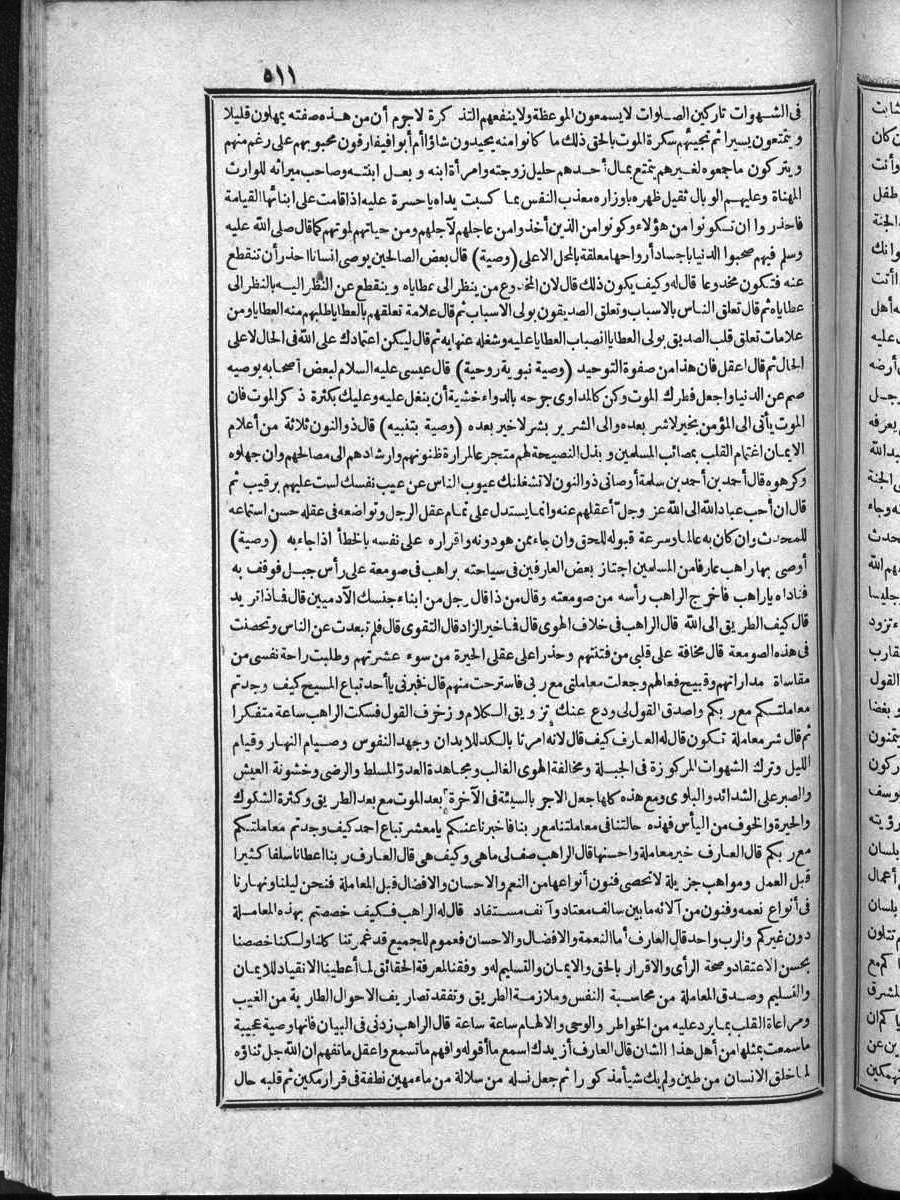 ٥١١
فى الشهوات تاركين الصلوات لا يسمعون الموعظة ولا ينفعهم التذكرة لا جرم أن من هذه صفته يمهلون قليلا
ويتمتعون يسيرا ثم تجيئهم سكرة الموت بالحق ذلك ما كانوا منه يحيدون شاؤا أم أبوا فيفارقون محبوبهم على رغم منهم
ويتركون ما جمعوه لغيرهم يتمتع بمال أحدهم حليل زوجته وامرأة ابنه وبعل ابنته وصاحب ميراثه للوارث
المهناة وعليهم الوبال ثقيل ظهره باوزاره معذب النفس بما كسبت يداه يا حسرة عليه اذا قامت على ابنائها القيامة
فاحذروا ان تكونوا من هؤلاء وكونوا من الذين أخذوا من عاجلهم لآجلهم ومن حياتهم لموتهم كما قال صلى الله عليه
وسلم فيهم صحبوا الدنيا باجساد أرواحها معلقة بالمحل الاعلى (وصية) قال بعض الصالحين يوصى انسانا احذر أن تنقطع
عنه فتكون مخدوعا قال له وكيف يكون ذلك قال لان المخدوع من ينظر الى عطاياه وينقطع عن النظر اليه بالنظر الى
عطاياه ثم قال تعلق الناس بالاسباب وتعلق الصديقون بولى الاسباب ثم قال علامة تعلقهم بالعطايا طلبهم منه العطايا ومن
علامات تعلق قلب الصديق بولى العطايا انصباب العطايا عليه وشغله عنها به ثم قال ليكن اعتمادك على الله فى الحال لا على
الحال ثم قال اعقل فان هذا من صفوة التوحيد (وصية نبوية روحية) قال عيسى عليه السلام لبعض أصحابه يوصيه
صم عن الدنيا واجعل فطرك الموت وكن كالمداوى جرحه بالدواء خشية أن ينغل عليه وعليك بكثرة ذكر الموت فان
الموت يأتى الى المؤمن بخير لا شر بعده والى الشرير بشر لا خير بعده (وصية بتنبيه) قال ذو النون ثلاثة من أعلام
الايمان اغتمام القلب بمصائب المسلمين وبذل النصيحة لهم متجرعا لمرارة ظنونهم وارشادهم الى مصالحهم وان جهلوه
وكرهوه قال أحمد بن أحمد بن سلمة أوصانى ذو النون لا تشغلنك عيوب الناس عن عيب نفسك لست عليهم برقيب ثم
قال ان أحب عباد الله الى الله عز وجل أعقلهم عنه وانما يستدل على تمام عقل الرجل وتواضعه فى عقله حسن استماعه
للمحدث وان كان به عالما وسرعة قبوله للحق وان جاء ممن هو دونه واقراره على نفسه بالخطأ اذا جاء به (وصية)
أوصى بها راهب عارفا من المسلمين اجتاز بعض العارفين فى سياحته براهب فى صومعة على رأس جبل فوقف به
فناداه يا راهب فأخرج الراهب رأسه من صومعته وقال من ذا قال رجل من ابناء جنسك الآدميين قال فاذا تريد
قال كيف الطريق الى الله قال الراهب فى خلاف الهوى قال فما خير الزاد قال التقوى قال فلم تبعدت عن الناس وتحصنت
فى هذه الصومعة قال مخافة على قلبى من فتنتهم وحذرا على عقلى الحيرة من سوء عشرتهم وطلبت راحة نفسى من
مقاساة مداراتهم وقبيح فعالهم وجعلت معاملتى مع ربى فاسترحت منهم قال خبرنى يا أحد تباع المسيح كيف وجدتم
معاملتكم مع ربكم واصدق القول لى ودع عنك تزويق الكلام وزخرف القول فسكت الراهب ساعة متفكرا
ثم قال شر معاملة تكون قال له العارف كيف قال لانه امرنا بالكد للابدان وجهد النفوس وصيام النهار وقيام
الليل وترك الشهوات المركوزة فى الجبلة ومخالفة الهوى الغالب ومجاهدة العدو المسلط والرضى وخشونة العيش
والصبر على الشدائد والبلوى ومع هذه كلها جعل الاجر بالسيئة فى الآخرة بعد الموت مع بعد الطريق وكثرة الشكوك
والحيرة والخوف من اليأس فهذه حالتنا فى معاملتنا مع ربنا فاخبرنا عنكم يا معشر تباع احمد كيف وجدتم معاملتكم
مع ربكم قال العارف خير معاملة واحسنها قال الراهب صف لى ما هى وكيف هى قال العارف ربنا اعطانا سلفا كثيرا
قبل العمل ومواهب جزيلة لا تحصى فنون أنواعها من النعم والاحسان والافضال قبل المعاملة فنحن ليلنا ونهارنا
فى أنواع نعمه وفنون من آلائه ما بين سالف معتاد وآنف مستفاد قال له الراهب فكيف خصصتم بهذه المعاملة
دون غيركم والرب واحد قال العارف أما النعمة والافضال والاحسان فعموم للجميع قد غمرتنا كلنا ولكنا خصصنا
بحسن الاعتقاد وصحة الرأى والاقرار بالحق والايمان والتسليم له ووفقنا لمعرفة الحقائق لما أعطينا الانقياد للايمان
والتسليم وصدق المعاملة من محاسبة النفس وملازمة الطريق وتفقد تصاريف الاحوال الطارية من الغيب
ومراعاة القلب بما يرد عليه من الخواطر والوحى والالهام ساعة ساعة قال الراهب زدنى فى البيان فانها وصية عجيبة
ما سمعت بمثلها من أهل هذا الشان قال العارف أزيدك اسمع ما أقوله وافهم ما تسمع واعقل ما تفهم ان الله جل ثناؤه
لما خلق الانسان من طين ولم يك شيأ مذكورا ثم جعل نسله من سلالة من ماء مهين نطفة فى قرار مكين ثم قلبه حال